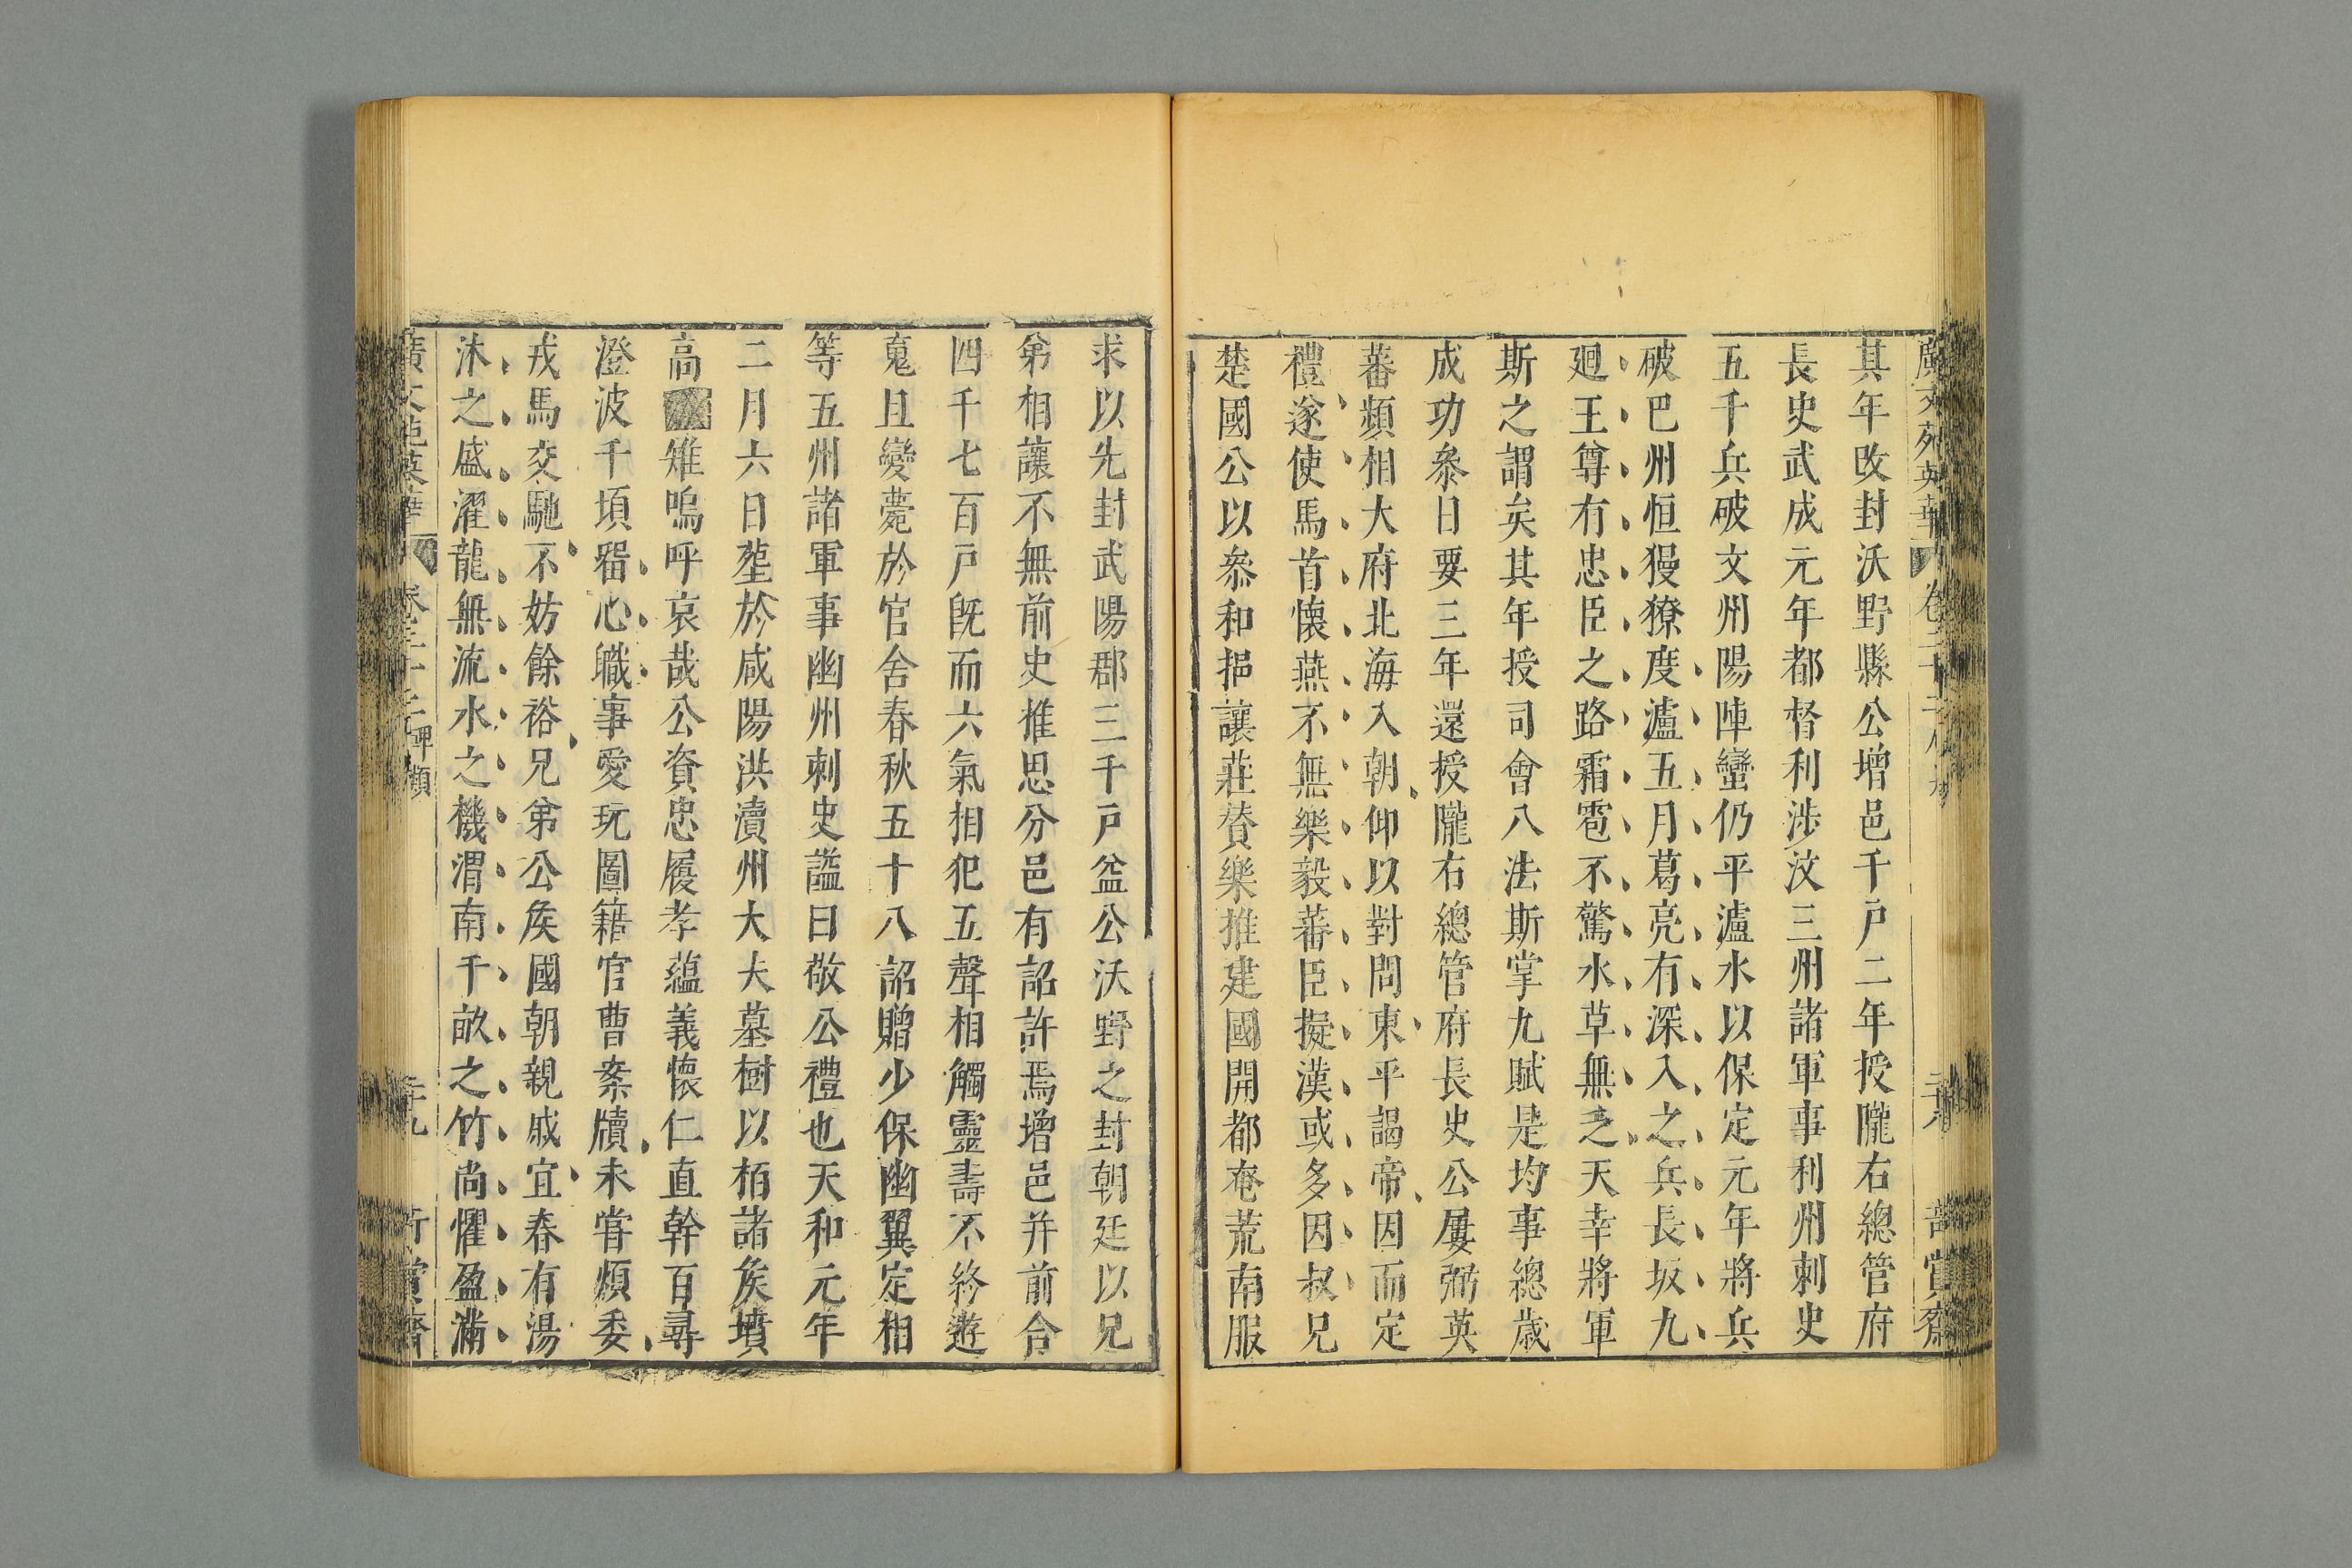 廣文苑英華 卷二十 賞齋
其年改封沃野縣公增邑千戸二年授隴右總管府
長史武成元年都督利渉汶三州諸軍事利州刺史
五千兵破文州陽陣蠻仍平瀘水以保定元年將兵
破巴州恒獶獠度瀘五月葛亮有深入之兵長坂九
廻王尊有忠臣之路霜雹不驚水草無乏天幸將軍
斯之謂矣其年授司會八法斯掌九賦是均事總歳
成功叅日要三年還授隴右總管府長史公屢弼英
蕃頻相大府北海入朝仰以對問東平謁帝因而定
禮遂使馬首懷燕不無樂毅蕃臣擬漢或多因叔兄
楚國公以叅和挹讓莊賛樂推建國開都奄荒南服
求以先封武陽郡三千戸益公沃野之封朝廷以兄
弟相讓不無前史推思分邑有詔許焉增邑并前合
四千七百戸旣而六氣相犯五聲相觸靈壽不終遊
䰟且變薨於官舍春秋五十八詔贈少保幽翼定相
等五州諸軍事幽州刺史謚曰敬公禮也天和元年
二月六日塟於咸陽洪瀆州大夫墓樹以栢諸矦墳
高雉嗚呼哀哉公資忠履孝蘊義懷仁直幹百尋
澄波千頃畱心職事愛玩圖籍官曹案牘未甞煩委
戎馬交馳不妨餘裕兄弟公矦國朝親戚宜春有湯
沐之盛濯龍無流水之機渭南千畝之竹尚懼盈滿
廣文苑英華 卷二十 碑類 二十九 賞齋